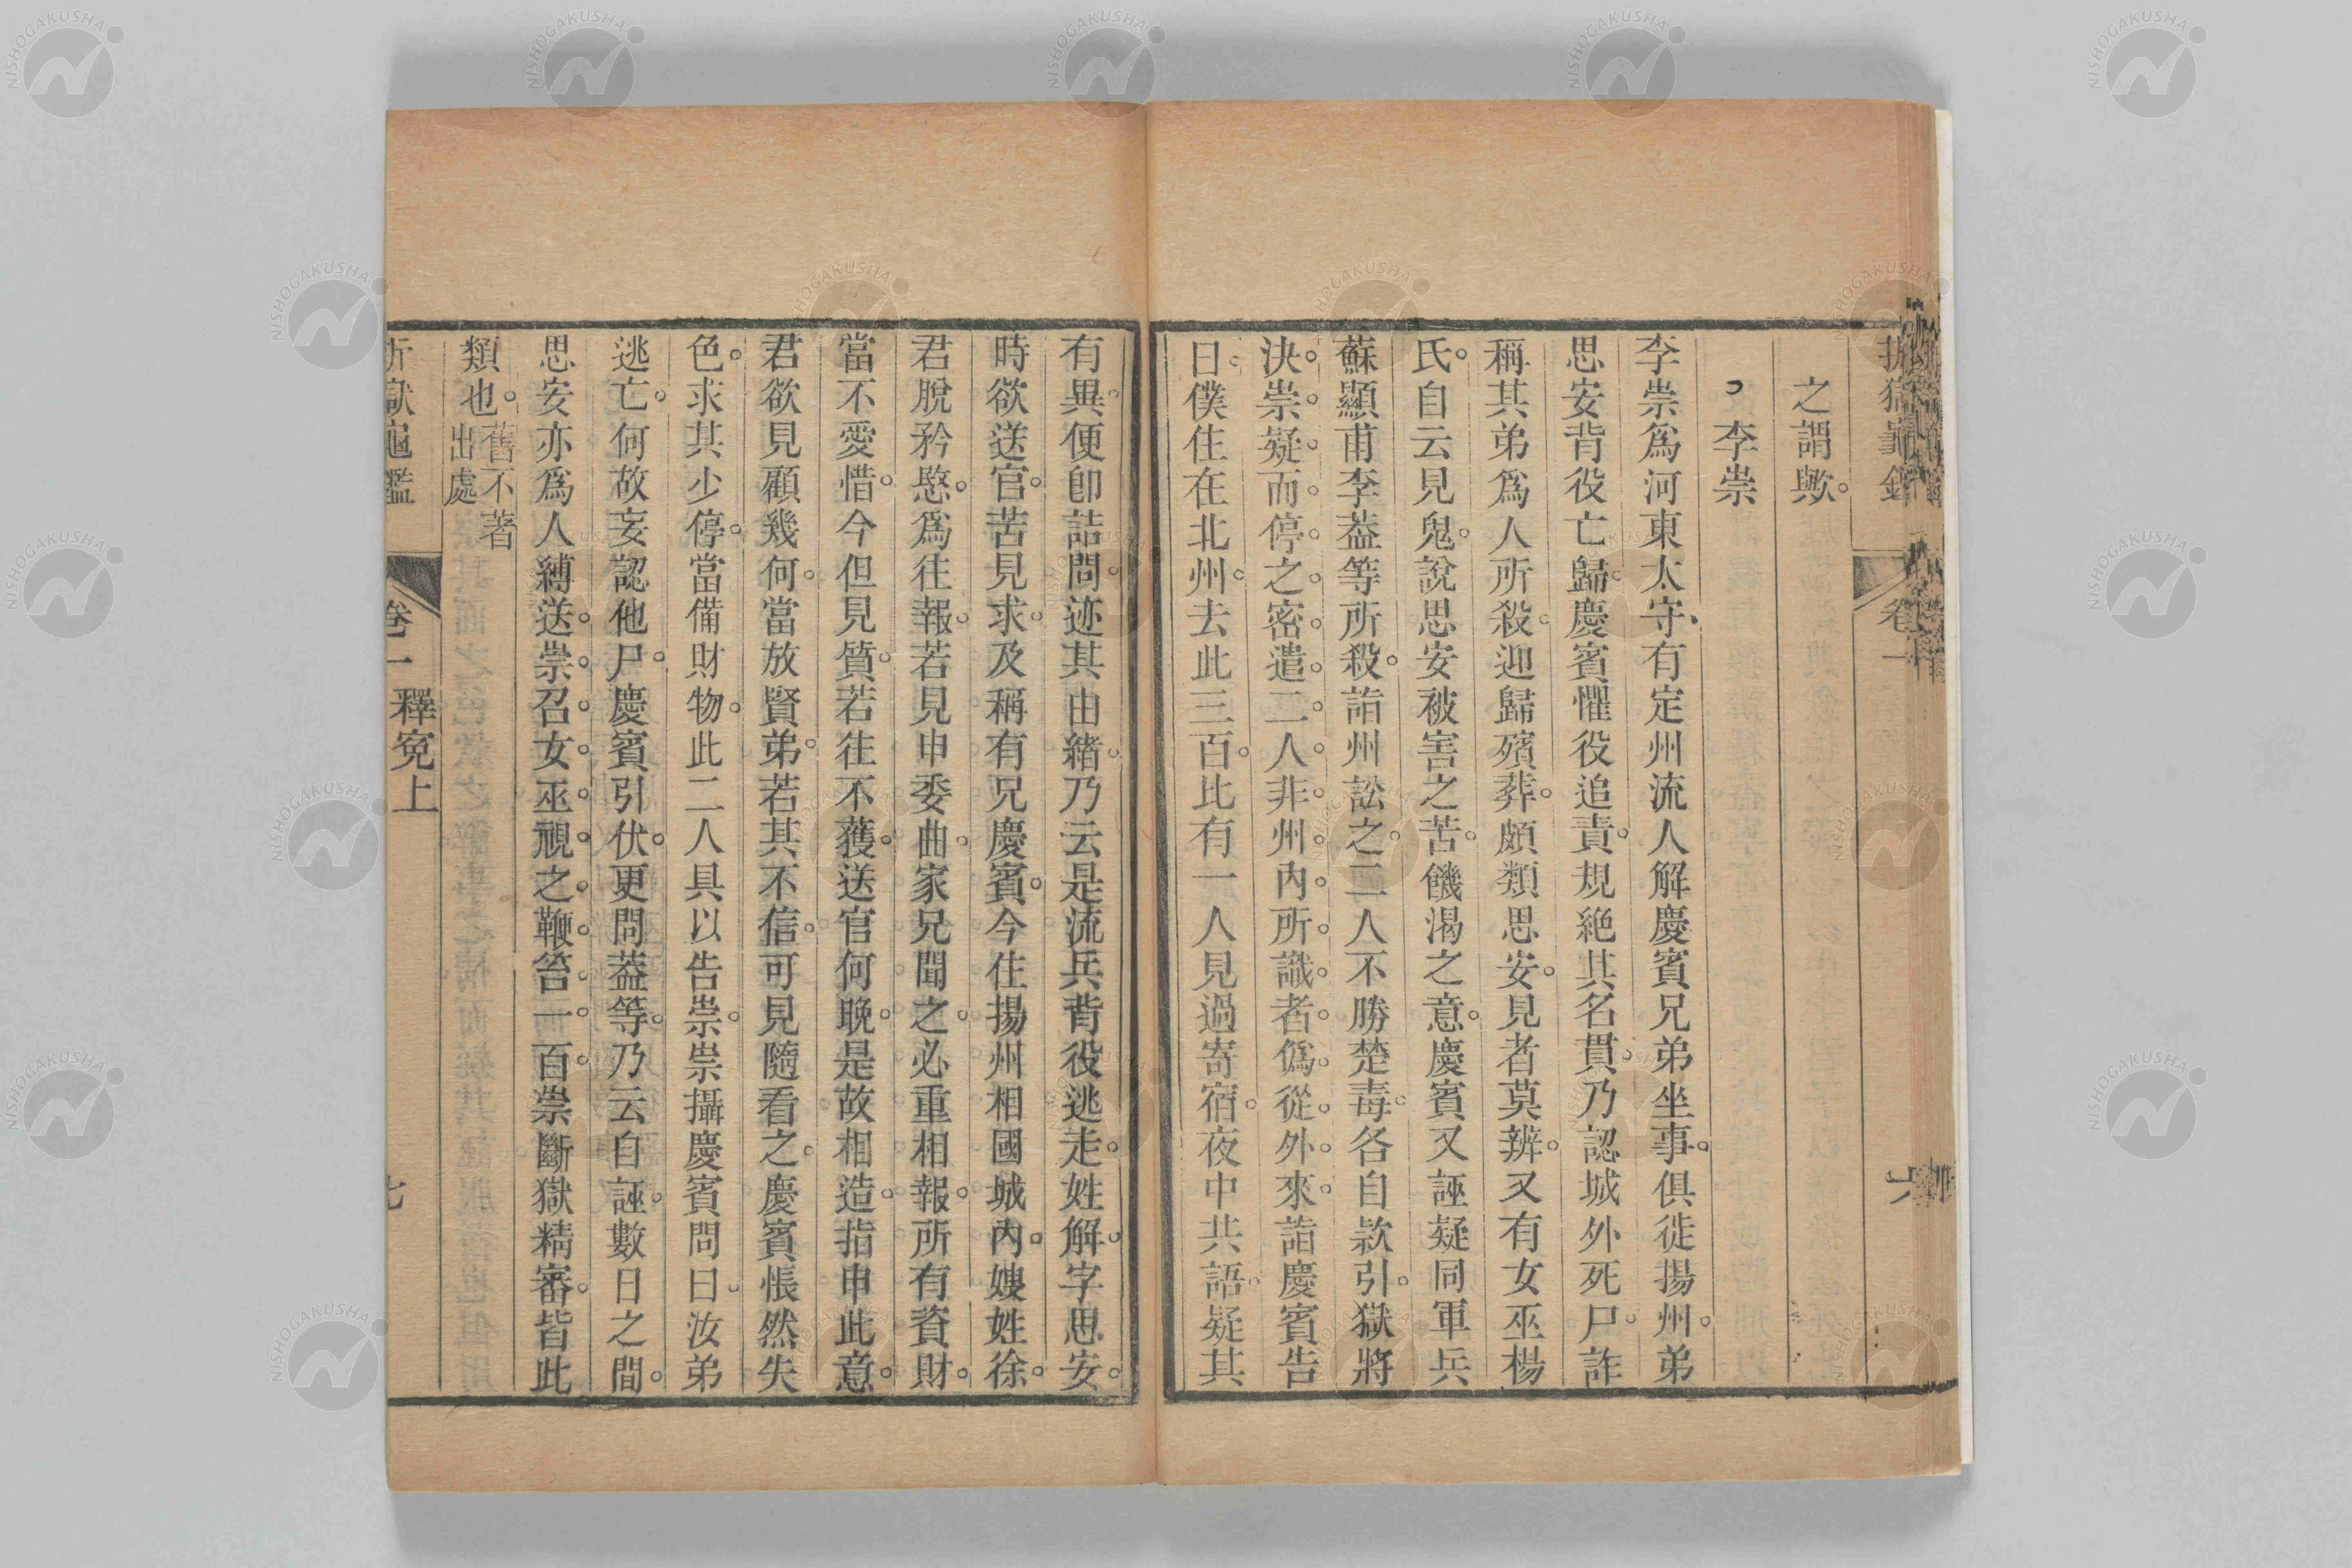 之謂歟。
李崇
李崇爲河東太守有定州流人解慶賓兄弟坐事。俱徙揚州。弟
思安背役亡歸。慶賓懼役追責。規絶其名貫。乃認城外死尸。詐
稱其弟爲人所殺。迎歸殯葬。頗類思安。見者莫辨。又有女巫楊
氏。自云見鬼。說思安被害之苦。饑渴之意。慶賓又誣疑同軍兵
蘇顯甫李葢等所殺。詣州訟之。二人不勝楚毒。各自款引。獄將
決。崇。疑。而。停。之。密。遣。二。人。非。州。內。所。識。者。僞。從。外。來。詣慶賓告
曰。僕住在北州。去此三百。比有一人見過寄宿。夜中共語。疑其
有異。便卽詰問。迹其由緒。乃云是流兵背役逃走。姓解。字思安。
時欲送官。苦見求。及稱有兄慶賓。今住揚州相國城內。嫂姓徐。
君脫矜愍。爲往報。若見申委曲。家兄聞之。必重相報。所有資財。
當不愛惜。今但見質。若往不獲。送官何晚。是故相造。指申此意。
君欲見顧幾何。當放賢弟。若其不信。可見隨看之。慶賓悵然失
色。求其少停。當備財物。此二人具以告崇。崇攝慶賓問曰。汝弟
逃亡。何故妄認他尸。慶賓引伏。更問葢等。乃云自誣。數日之間。
思安亦爲人縛送。崇。召。女。巫。視。之。鞭。笞。一。百。崇斷獄精審。皆此
類也。舊不著
出處
卷一
六
卷一 釋冤上
七